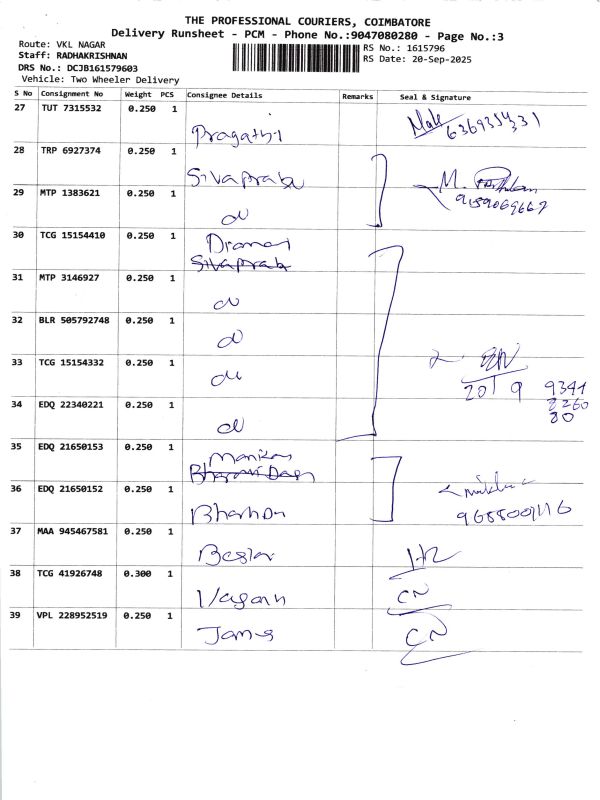 THE PROFESSIONAL COURIERS, COIMBATORE
Delivery Runsheet - PCM - Phone No.:9047080280 - Page No.:3
Route: VKL NAGAR
Staff: RADHAKRISHNAN
DRS No.: DCJB161579603
Vehicle: Two Wheeler Delivery
RS No.: 1615796
RS Date: 20-Sep-2025
S No Consignment No Weight PCS Consignee Details Remarks Seal & Signature
27 TUT 7315532 0.250 1
Pragathi
28 TRP 6927374 0.250 1
Sivaprabu
29 MTP 1383621 0.250 1
M.
30 TCG 15154410 0.250 1
Sivaprab
31 MTP 3146927 0.250 1
32 BLR 505792748 0.250 1
33 TCG 15154332 0.250 1
20/9 9344
8260
80
34 EDQ 22340221 0.250 1
35 EDQ 21650153 0.250 1
36 EDQ 21650152 0.250 1
37 MAA 945467581 0.250 1
38 TCG 41926748 0.300 1
CN
39 VPL 228952519 0.250 1
James CN